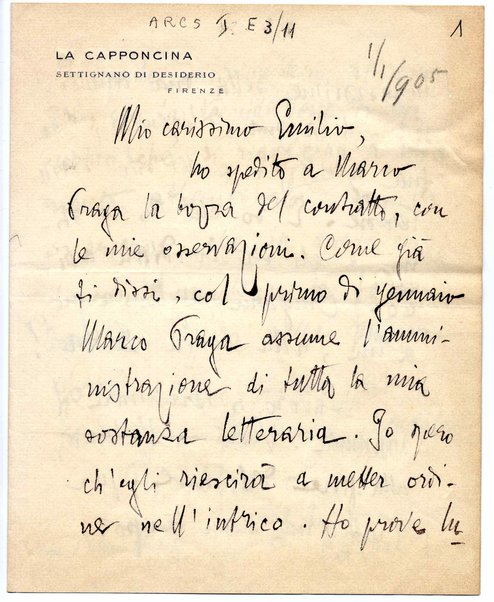 ARCS I E 3/11
1
LA CAPPONCINA
SETTIGNANO DI DESIDERIO
FIRENZE
1/1/905
Mio carissimo Emilio,
ho spedito a Marco
Praga la bozza del contratto, con
le mie osservazioni. Come già
ti dissi, col primo di gennaio
Marco Praga assume l'ammi-
nistrazione di tutta la mia
sostanza letteraria. Io spero
ch'egli riescirà a metter ordi-
ne nell'intrico. Ho prove lu-